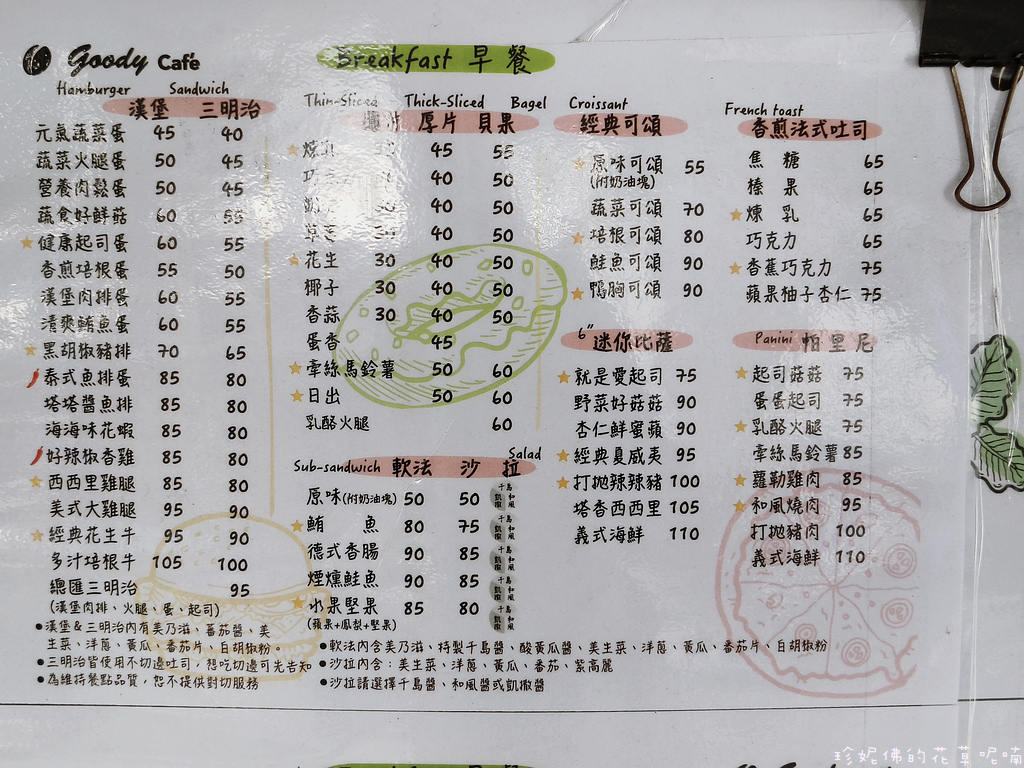 Goody Café
Breakfast 早餐
Hamburger Sandwich
漢堡 三明治
元氣蔬菜蛋 45 40
蔬菜火腿蛋 50 45
營養肉鬆蛋 50 45
蔬食好鮮菇 60 55
健康起司蛋 60 55
香煎培根蛋 55 50
漢堡肉排蛋 60 55
清爽鮪魚蛋 60 55
黑胡椒豬排 70 65
泰式魚排蛋 85 80
塔塔醬魚排 85 80
海海味花蝦 85 80
好辣辣椒香雞 85 80
西西里雞腿 85 80
美式大雞腿 95 90
經典花生牛 95 90
多汁培根牛 105 100
總匯三明治 95
(漢堡肉排、火腿、蛋、起司)
●漢堡&三明治內有美乃滋、蕃茄醬、美
生菜、洋蔥、黃瓜、番茄片、白胡椒粉。
●三明治皆使用不切邊吐司，想吃切邊可先告知
●為維持餐點品質，恕不提供對切服務
Thin-Sliced Thick-Sliced Bagel
片 厚片 貝果
45 55
40 50
40 50
40 50
花生 30 40 50
椰子 30 40 50
香蒜 30 40 50
蛋香 45
牽絲馬鈴薯 50 60
日出 50 60
乳酪火腿 60
Sub-sandwich Salad
軟法 沙拉
原味(附奶油塊) 50 50 千島 和風 凱撒
鮪魚 80 75 千島 和風 凱撒
德式香腸 90 85 千島 和風 凱撒
煙燻鮭魚 90 85 千島 和風 凱撒
水果堅果 85 80 千島 和風 凱撒
(蘋果+鳳梨+堅果)
●軟法內含美乃滋、特製千島醬、酸黃瓜醬、美生菜、洋蔥、黃瓜、番茄片、白胡椒粉
●沙拉內含：美生菜、洋蔥、黃瓜、番茄、紫高麗
●沙拉請選擇千島醬、和風醬或凱撒醬
Croissant
經典可頌
原味可頌 55
(附奶油塊)
蔬菜可頌 70
培根可頌 80
鮭魚可頌 90
鴨胸可頌 90
6" 迷你比薩
就是愛起司 75
野菜好菇菇 90
杏仁鮮蜜蘋 90
經典夏威夷 95
打拋辣辣豬 100
塔香西西里 105
義式海鮮 110
French toast
香煎法式吐司
焦糖 65
榛果 65
煉乳 65
巧克力 65
香蕉巧克力 75
蘋果柚子杏仁 75
Panini 帕里尼
起司菇菇 75
蛋蛋起司 75
乳酪火腿 75
牽絲馬鈴薯 85
蘿勒雞肉 85
和風燒肉 95
打拋豬肉 100
義式海鮮 110
珍妮佛的花草呢喃